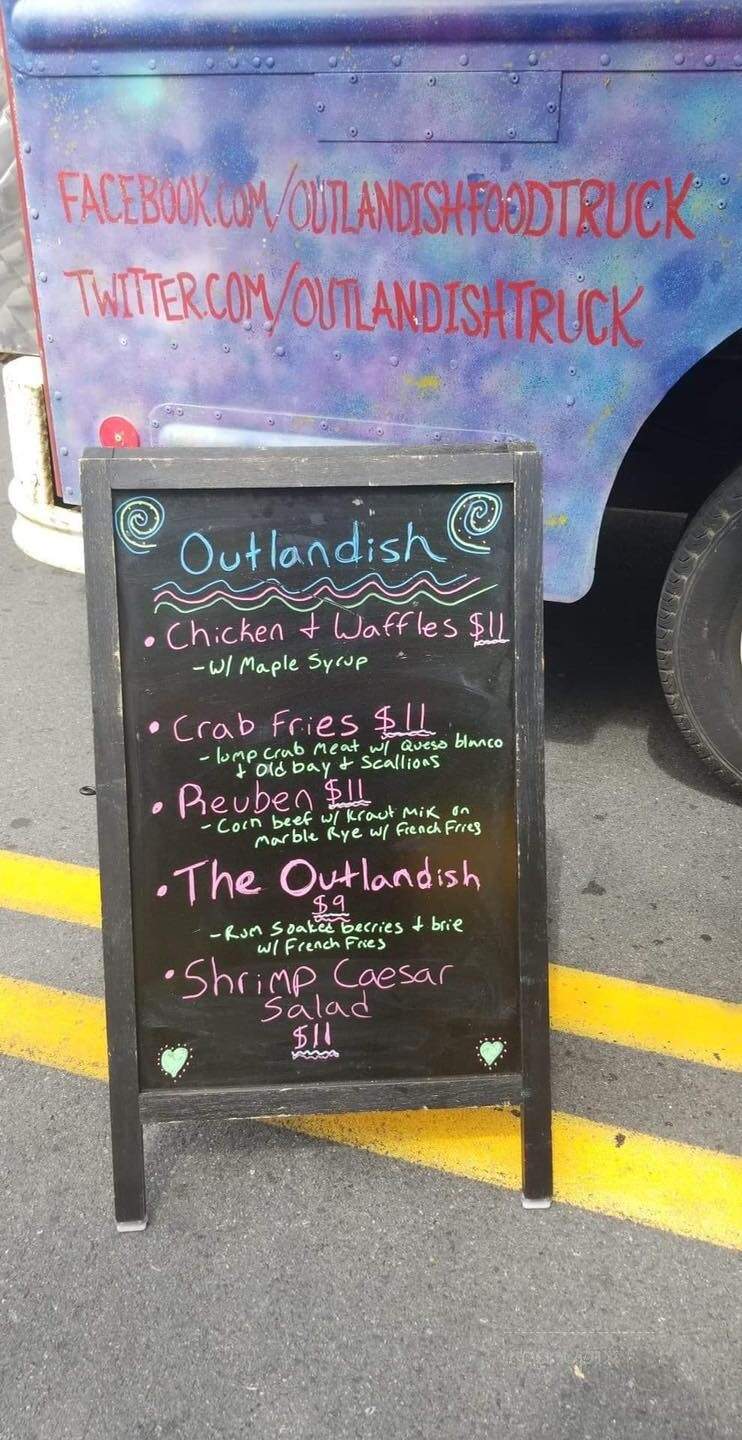 FACEBOOK.COM/OUTLANDISHFOODTRUCK
TWITTER.COM/OUTLANDISHTRUCK
Outlandish
• Chicken + Waffles $11
- w/ Maple Syrup
• Crab Fries $11
- lump crab meat w/ Queso blanco
+ Old bay + Scallions
• Reuben $11
- Corn beef w/ Kraut Mix on
marble Rye w/ French Fries
• The Outlandish
$9
- Rum Soaked berries + brie
w/ French Fries
• Shrimp Caesar
Salad
$11